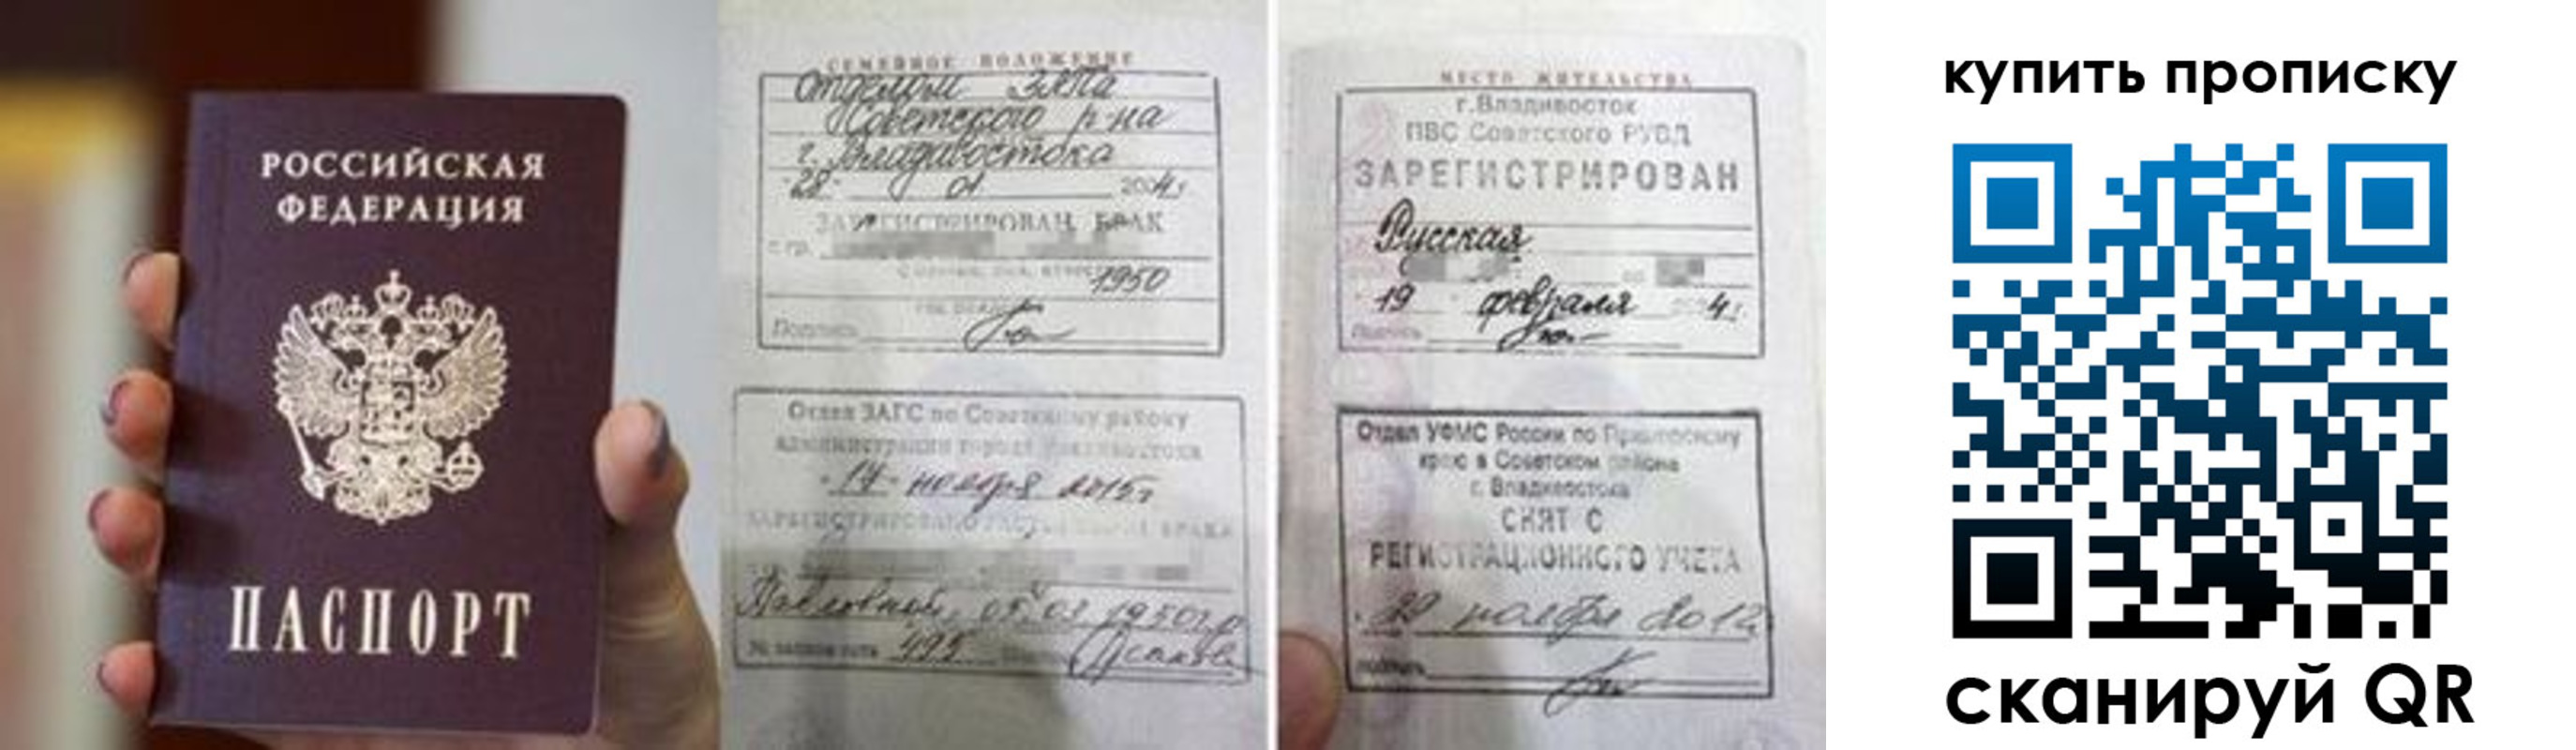 РОССИЙСКАЯ
ФЕДЕРАЦИЯ
ПАСПОРТ
СЕМЕЙНОЕ ПОЛОЖЕНИЕ
Отделом ЗАГСа
Советского р-на
г. Владивостока
"28" 01 2004 г.
ЗАРЕГИСТРИРОВАН БРАК
с гр.
1950
Подпись
Отдел ЗАГС по Советскому району
администрации города Владивостока
"17" ноября 2015 г.
Павловной, 05.03.1950 г.р.
№ записи акта 495
МЕСТО ЖИТЕЛЬСТВА
г.Владивосток
ПВС Советского РУВД
ЗАРЕГИСТРИРОВАН
Русская
19 февраля 4г.
Подпись
Отдел УФМС России по Приморскому
краю в Советском районе
г. Владивостока
СНЯТ С
РЕГИСТРАЦИОННОГО УЧЕТА
ноября 2012
подпись
купить прописку
сканируй QR